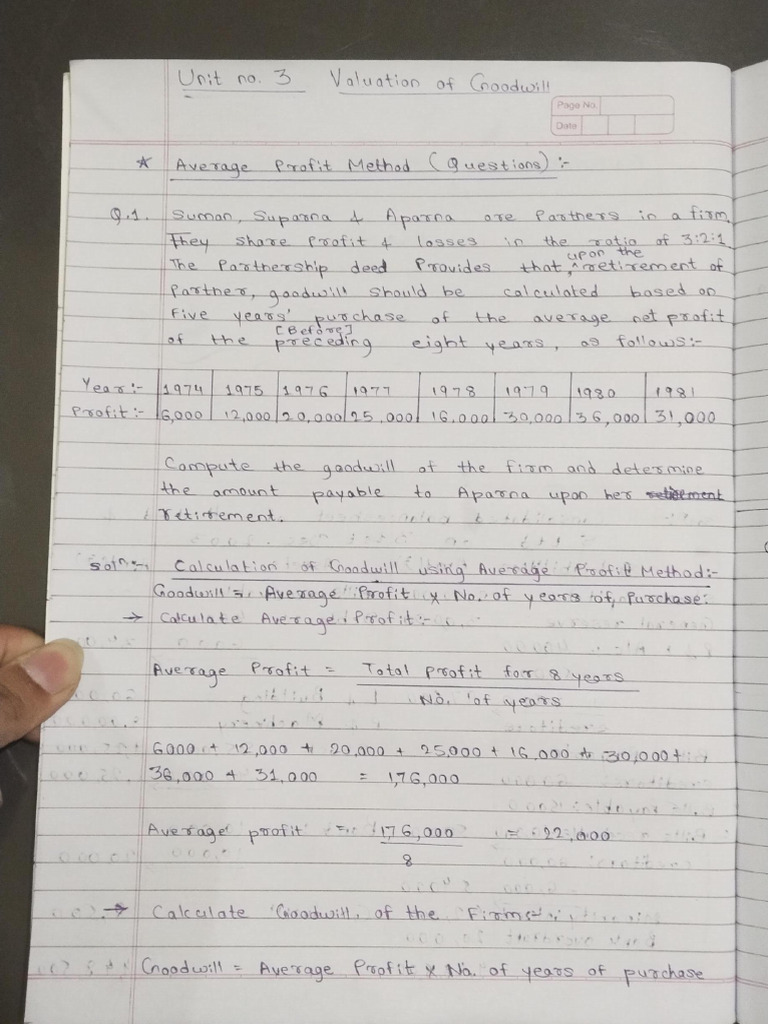 Unit no. 3 Valuation of Goodwill
Page No.
Date
* Average Profit Method (Questions) :-
Q.1. Suman, Suparna & Aparna are Partners in a firm.
They share Profit & losses in the ratio of 3:2:1
The Partnership deed Provides that, upon the retirement of
Partner, goodwill should be calculated based on
Five years' purchase of the average net profit
of the preceding [Before] eight years, as follows:-
Year:- 1974 1975 1976 1977 1978 1979 1980 1981
Profit:- 6,000 12,000 20,000 25,000 16,000 30,000 36,000 31,000
Compute the goodwill of the firm and determine
the amount payable to Aparna upon her
retirement.
Solⁿ:- Calculation of Goodwill using Average Profit Method:-
Goodwill = Average Profit x No. of years of Purchase.
→ Calculate Average Profit:-
Average Profit = Total Profit for 8 years
No. of years
6000 + 12,000 + 20,000 + 25,000 + 16,000 + 30,000 +
36,000 + 31,000 = 1,76,000
Average profit = 1,76,000 = 22,000
8
→ Calculate Goodwill of the Firm:-
Goodwill = Average Profit x No. of years of purchase